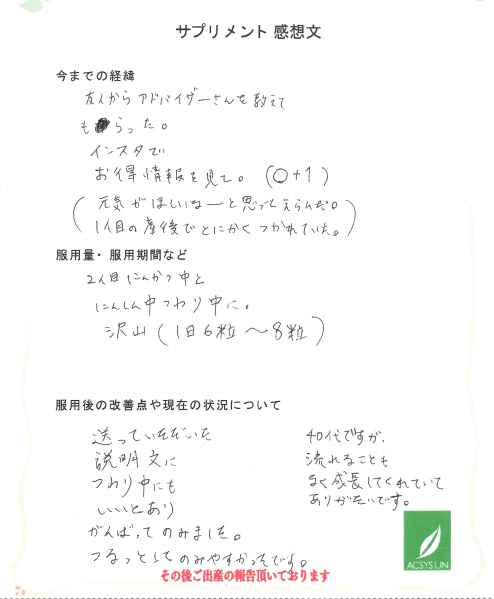 サプリメント 感想文
今までの経緯
友人からアドバイザーさんを教えて
もらった。
インスタで
お得情報を見て。(○+1)
(元気がほしいなーと思ってえらんだ。
1人目の産後でとにかくつかれていた。)
服用量・服用期間など
2人目にんかつ中と
にんしん中つわり中に。
沢山(1日6粒～8粒)
服用後の改善点や現在の状況について
送っていただいた
説明文に
つわり中にも
いいとあり
がんばってのみました。
つるっとしてのみやすかったです。
40代ですが、
流れることも
なく成長してくれていて
ありがたいです。
ACSYSUN
その後ご出産の報告頂いております